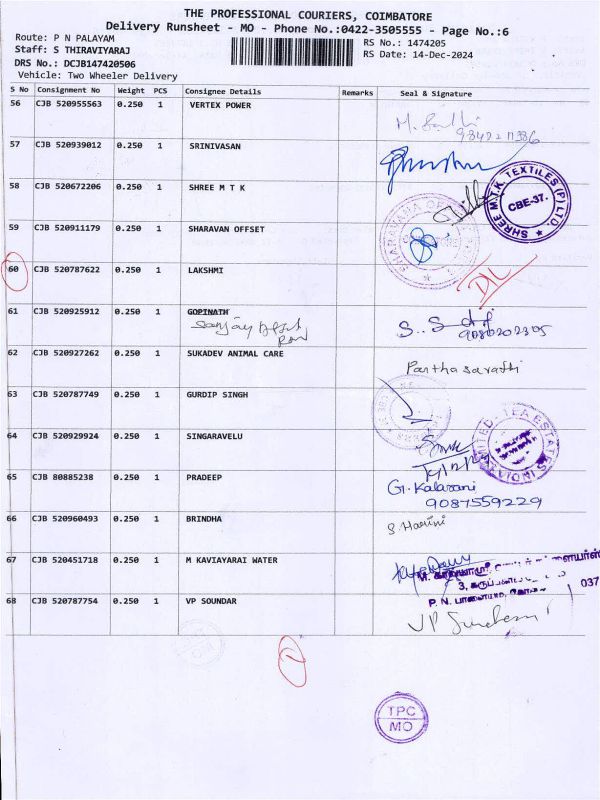 THE PROFESSIONAL COURIERS, COIMBATORE
Delivery Runsheet - MO - Phone No.:0422-3505555 - Page No.:6
Route: P N PALAYAM
RS No.: 1474205
Staff: S THIRAVIYARAJ
RS Date: 14-Dec-2024
DRS No.: DCJB147420506
Vehicle: Two Wheeler Delivery
S No Consignment No Weight PCS Consignee Details Remarks Seal & Signature
56 CJB 520955563 0.250 1 VERTEX POWER
57 CJB 520939012 0.250 1 SRINIVASAN
58 CJB 520672206 0.250 1 SHREE M T K
SHREE M.T.K. TEXTILES (P) LTD.
CBE-37.
59 CJB 520911179 0.250 1 SHARAVAN OFFSET
60 CJB 520787622 0.250 1 LAKSHMI
DL
61 CJB 520925912 0.250 1 GOPINATH
62 CJB 520927262 0.250 1 SUKADEV ANIMAL CARE
Partha sarathi
63 CJB 520787749 0.250 1 GURDIP SINGH
64 CJB 520929924 0.250 1 SINGARAVELU
TEA ESTATES INDIA
65 CJB 80885238 0.250 1 PRADEEP
G. Kalarani
9087559229
66 CJB 520960493 0.250 1 BRINDHA
S. Harini
67 CJB 520451718 0.250 1 M KAVIAYARAI WATER
68 CJB 520787754 0.250 1 VP SOUNDAR
VP
TPC
MO